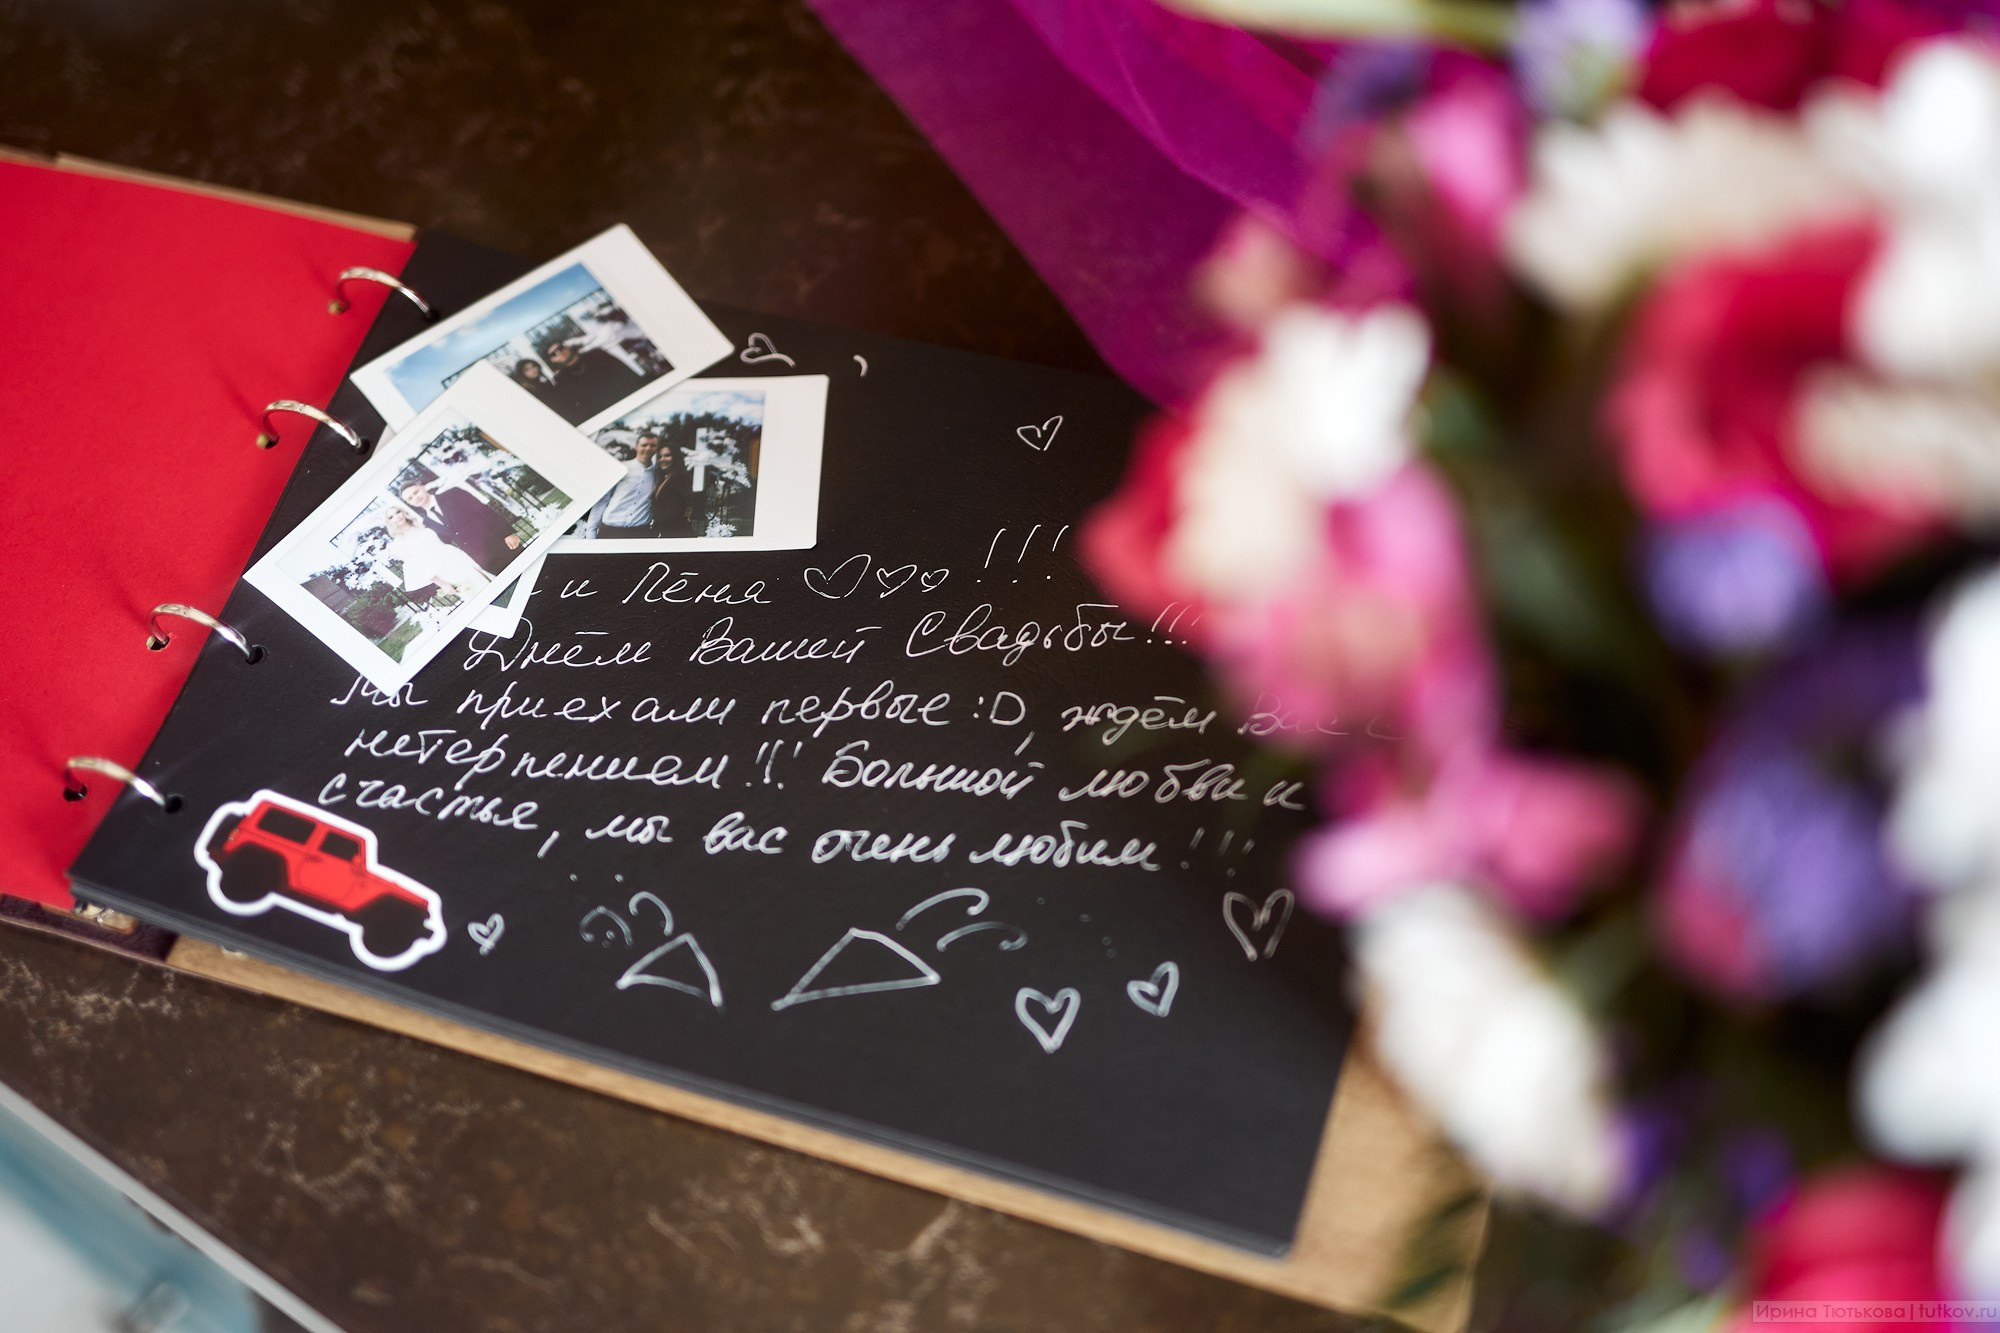 и Лёня !!!
Днём Вашей Свадьбы!!!
Мы приехали первые :D, ждём Вас с
нетерпением!!! Большой любви и
счастья, мы вас очень любим!!!
Ирина Тютькова | tutkov.ru